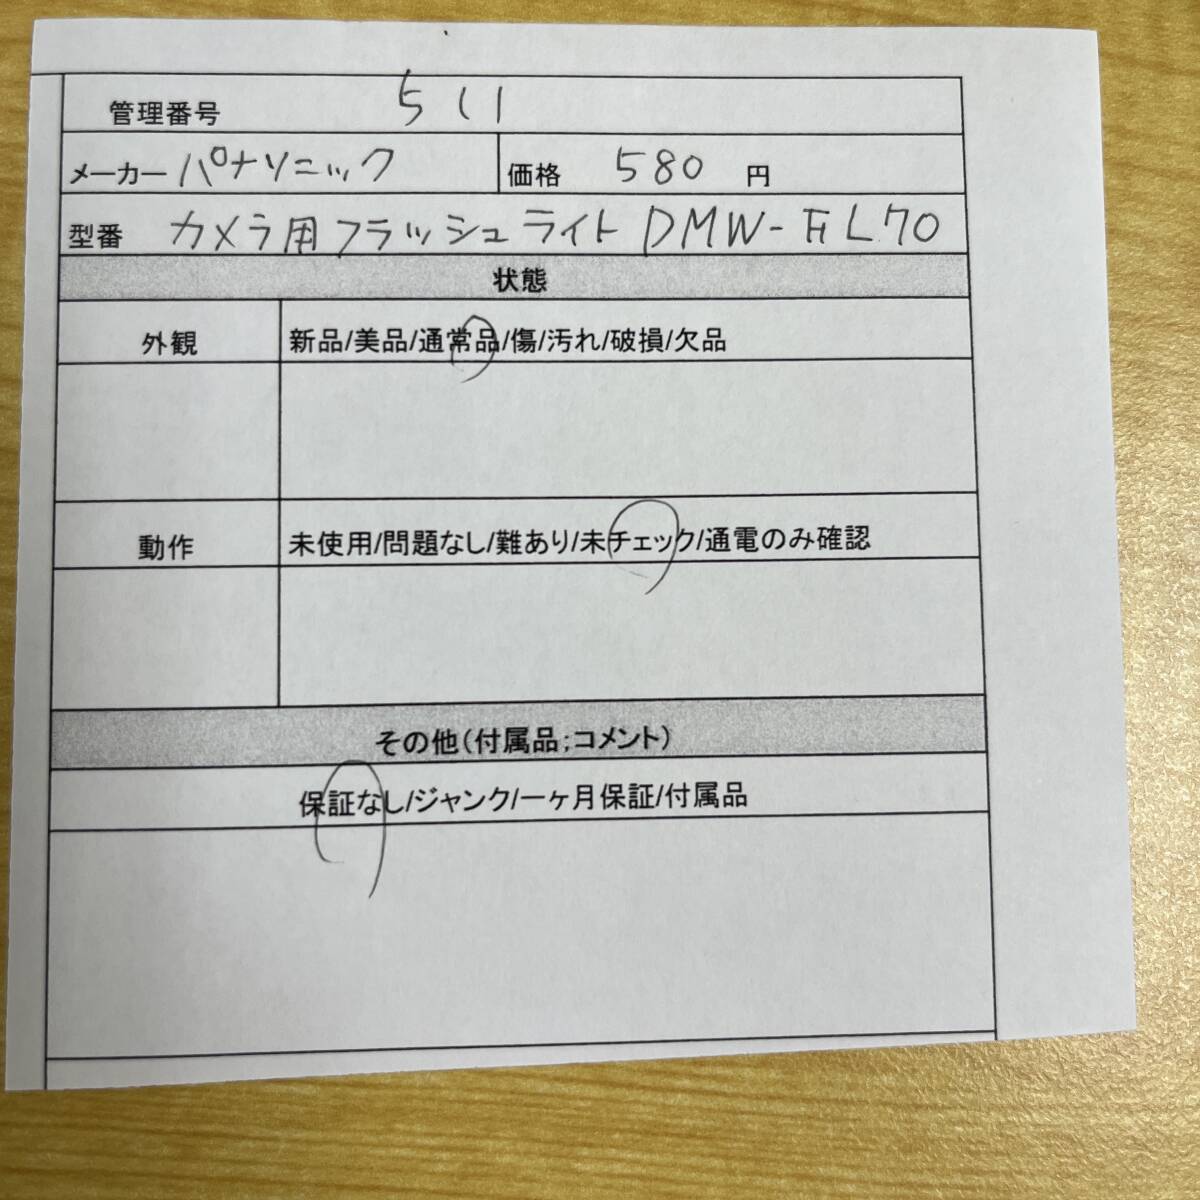 管理番号 511
メーカー パナソニック 価格 580 円
型番 カメラ用フラッシュライト DMW-FL70
状態
外観 新品/美品/通常品/傷/汚れ/破損/欠品
動作 未使用/問題なし/難あり/未チェック/通電のみ確認
その他(付属品;コメント)
保証なし/ジャンク/一ヶ月保証/付属品